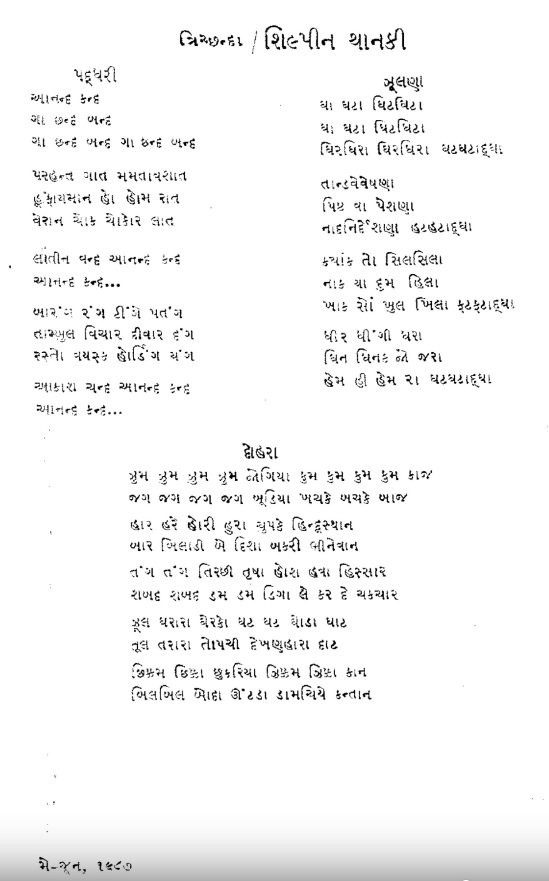 ત્રિચ્છન્દા / શિલ્પીન થાનકી
પદ્ધરી
આનન્દ કન્દ
ગા છન્દ બન્દ
ગા છન્દ બન્દ ગા છન્દ બન્દ
પરહન્ત ગાત મમતાવશાત
હૂંફાયમાન હો હોમ રાત
વેરાન ચોક ચોકોર લાત
લાતીન વન્દ આનન્દ કન્દ
આનન્દ કન્દ...
બારંગ રંગ ટીંગે પતંગ
તામ્બુલ વિચાર દીવાર દંગ
રસ્તો વયસ્ક હોર્ડિંગ યંગ
આકારા ચન્દ આનન્દ કન્દ
આનન્દ કન્દ...
ઝૂલણા
ધા ઘટા ઘિટઘિટા
ધા ઘટા ઘિટઘિટા
ઘિરઘિરા ઘિરઘિરા ઘટઘટાદ્ધા
તાન્ડવેવેષણા
પિષ્ટ વા પેશણા
નાદનિર્દેશણા હટહટાદ્ધા
ક્યાંક તો સિલસિલા
નાક યા દુમ હિલા
ખાક સોં ખુલ ખિલા ફટફટાદ્ધા
ધીર ધીંગી ધરા
ધિન ધિનક જો જરા
હેમ હી હેમ રા ઘટઘટાદ્ધા
દોહરા
ઝુમ ઝુમ ઝુમ ઝુમ જોગિયા કુમ કુમ કુમ કુમ કાજ
જગ જગ જગ જગ ખૂટિયા ખચકે ખચકે ખાજ
હાર હરે હોરી હુરા ચુપકે હિન્દૂસ્થાન
બાર બિલાડી બે દિશા બકરી બીનેવાન
તંગ તંગ તિરછી તૃષા હોશ હવા હિસ્સાર
શબદ શબદ ડમ ડમ ડિગા લે કર દે ચકચાર
ઝૂલ ધરારા ઘેરકો ઘટ ઘટ ઘોડા ઘાટ
તૂલ તરારા તોપચી દેખણહારા દાટ
છિક્રમ છિક્રા છુકરિયા ઝિક્રમ ઝિક્રા કાન
બિલબિલ બોદા ઊંટડા ડામચિયે કન્તાન
મે-જૂન, ૧૯૮૭